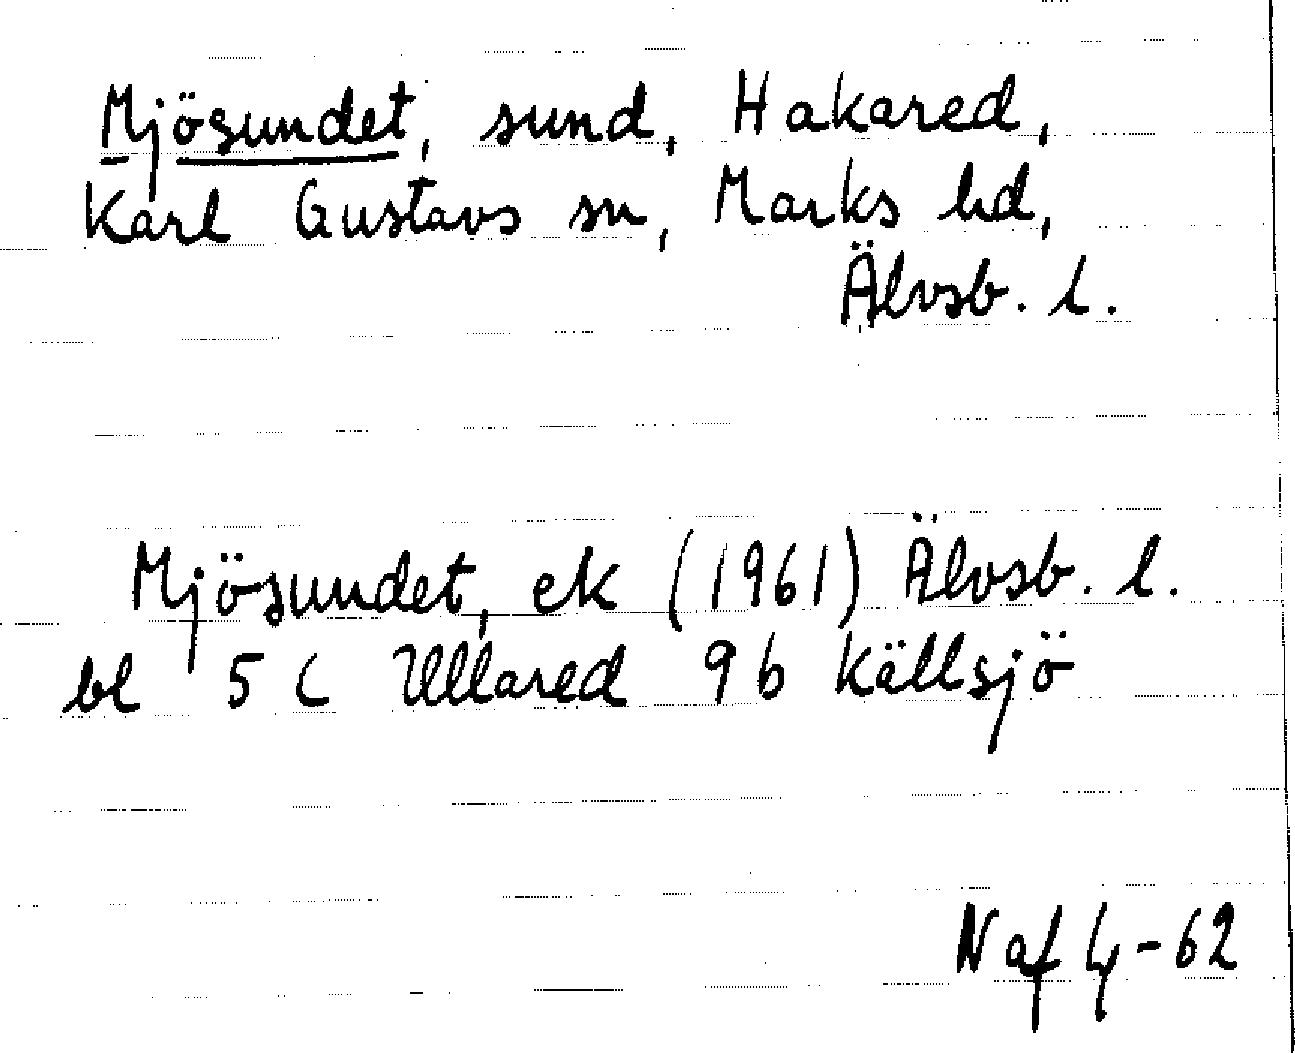 Mjösundet, sund, Hakared,
Karl Gustavs sn, Marks hd,
Älvsb. l.
Mjösundet, ek (1961) Älvsb. l.
bl 5 C Ullared 9 b Källsjö
N af 4-62